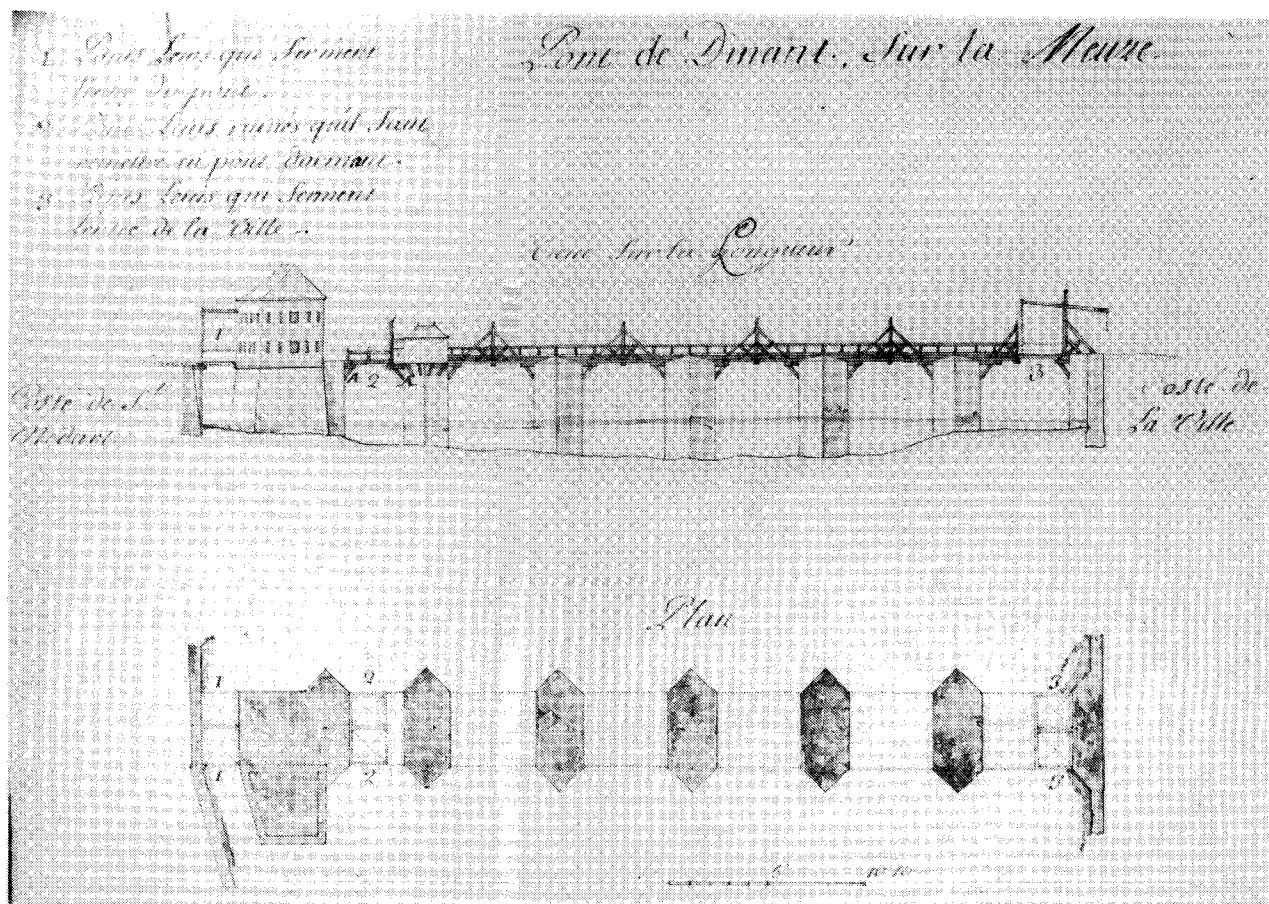 Pont de Dinant, Sur la Meuze
1. Ponts Levis que ferment
2. Levis ruinés qu'il faut
remettre en pont Dormant.
3. Ponts Levis qui ferment
de la Ville.
Veue Sur la Longueur
1
A 2 A
3
Costé de St
Medart
Costé de
La Ville
Plan
1 2 3
1 2 3